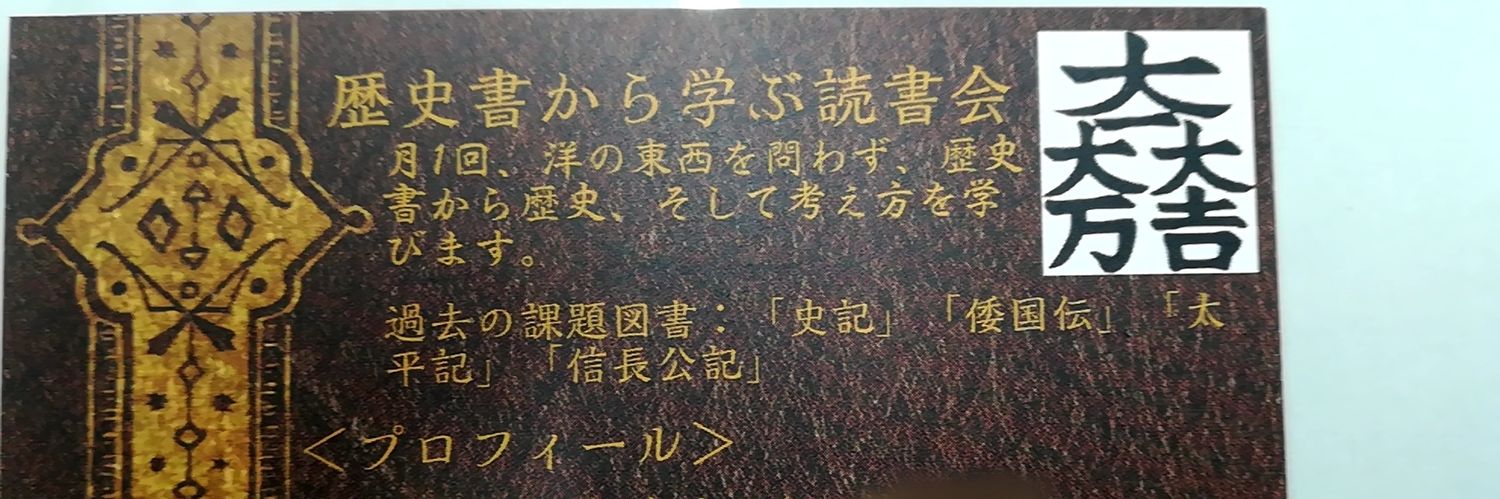 歴史書から学ぶ読書会
月1回、洋の東西を問わず、歴史
書から歴史、そして考え方を学
びます。
過去の課題図書：「史記」「倭国伝」「太
平記」「信長公記」
＜プロフィール＞
大
大大
万吉